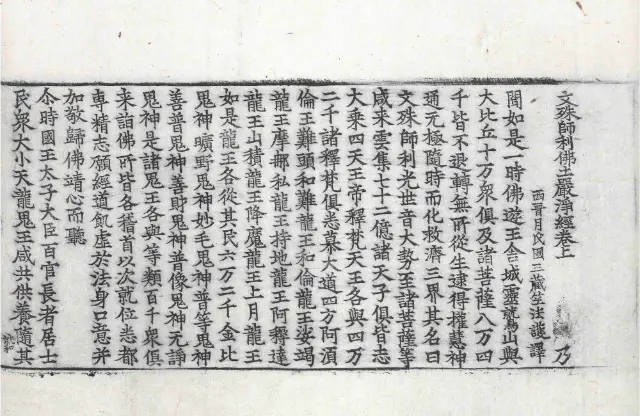 文殊師利佛土嚴淨經卷上 乃
西晉月氏國三藏竺法護譯
聞如是一時佛遊王舍城靈鷲山與
大比丘十万衆俱及諸菩薩八万四
千皆不退轉無所從生逮得權慧神
通元極隨時而化救濟三界其名曰
文殊師利光世音大勢至諸菩薩等
咸来雲集七十二億諸天子俱皆志
大乘四天王帝釋梵天王各與四万
二千諸釋梵俱悉慕大道四方阿湏
倫王難頭和難龍王和倫龍王娑竭
龍王摩那私龍王持地龍王阿耨達
龍王山積龍王降魔龍王上月龍王
如是龍王各從其民六万二千金比
鬼神曠野鬼神妙毛鬼神普等鬼神
善普鬼神善財鬼神普像鬼神元諍
鬼神是諸鬼王各與等類百千衆俱
来詣佛所皆各稽首以次就位悉都
専精志願經道飢虛於法身口意并
加敬歸佛靖心而聽
尒時國王太子大臣百官長者居士
民衆大小天龍鬼王咸共供養隨其